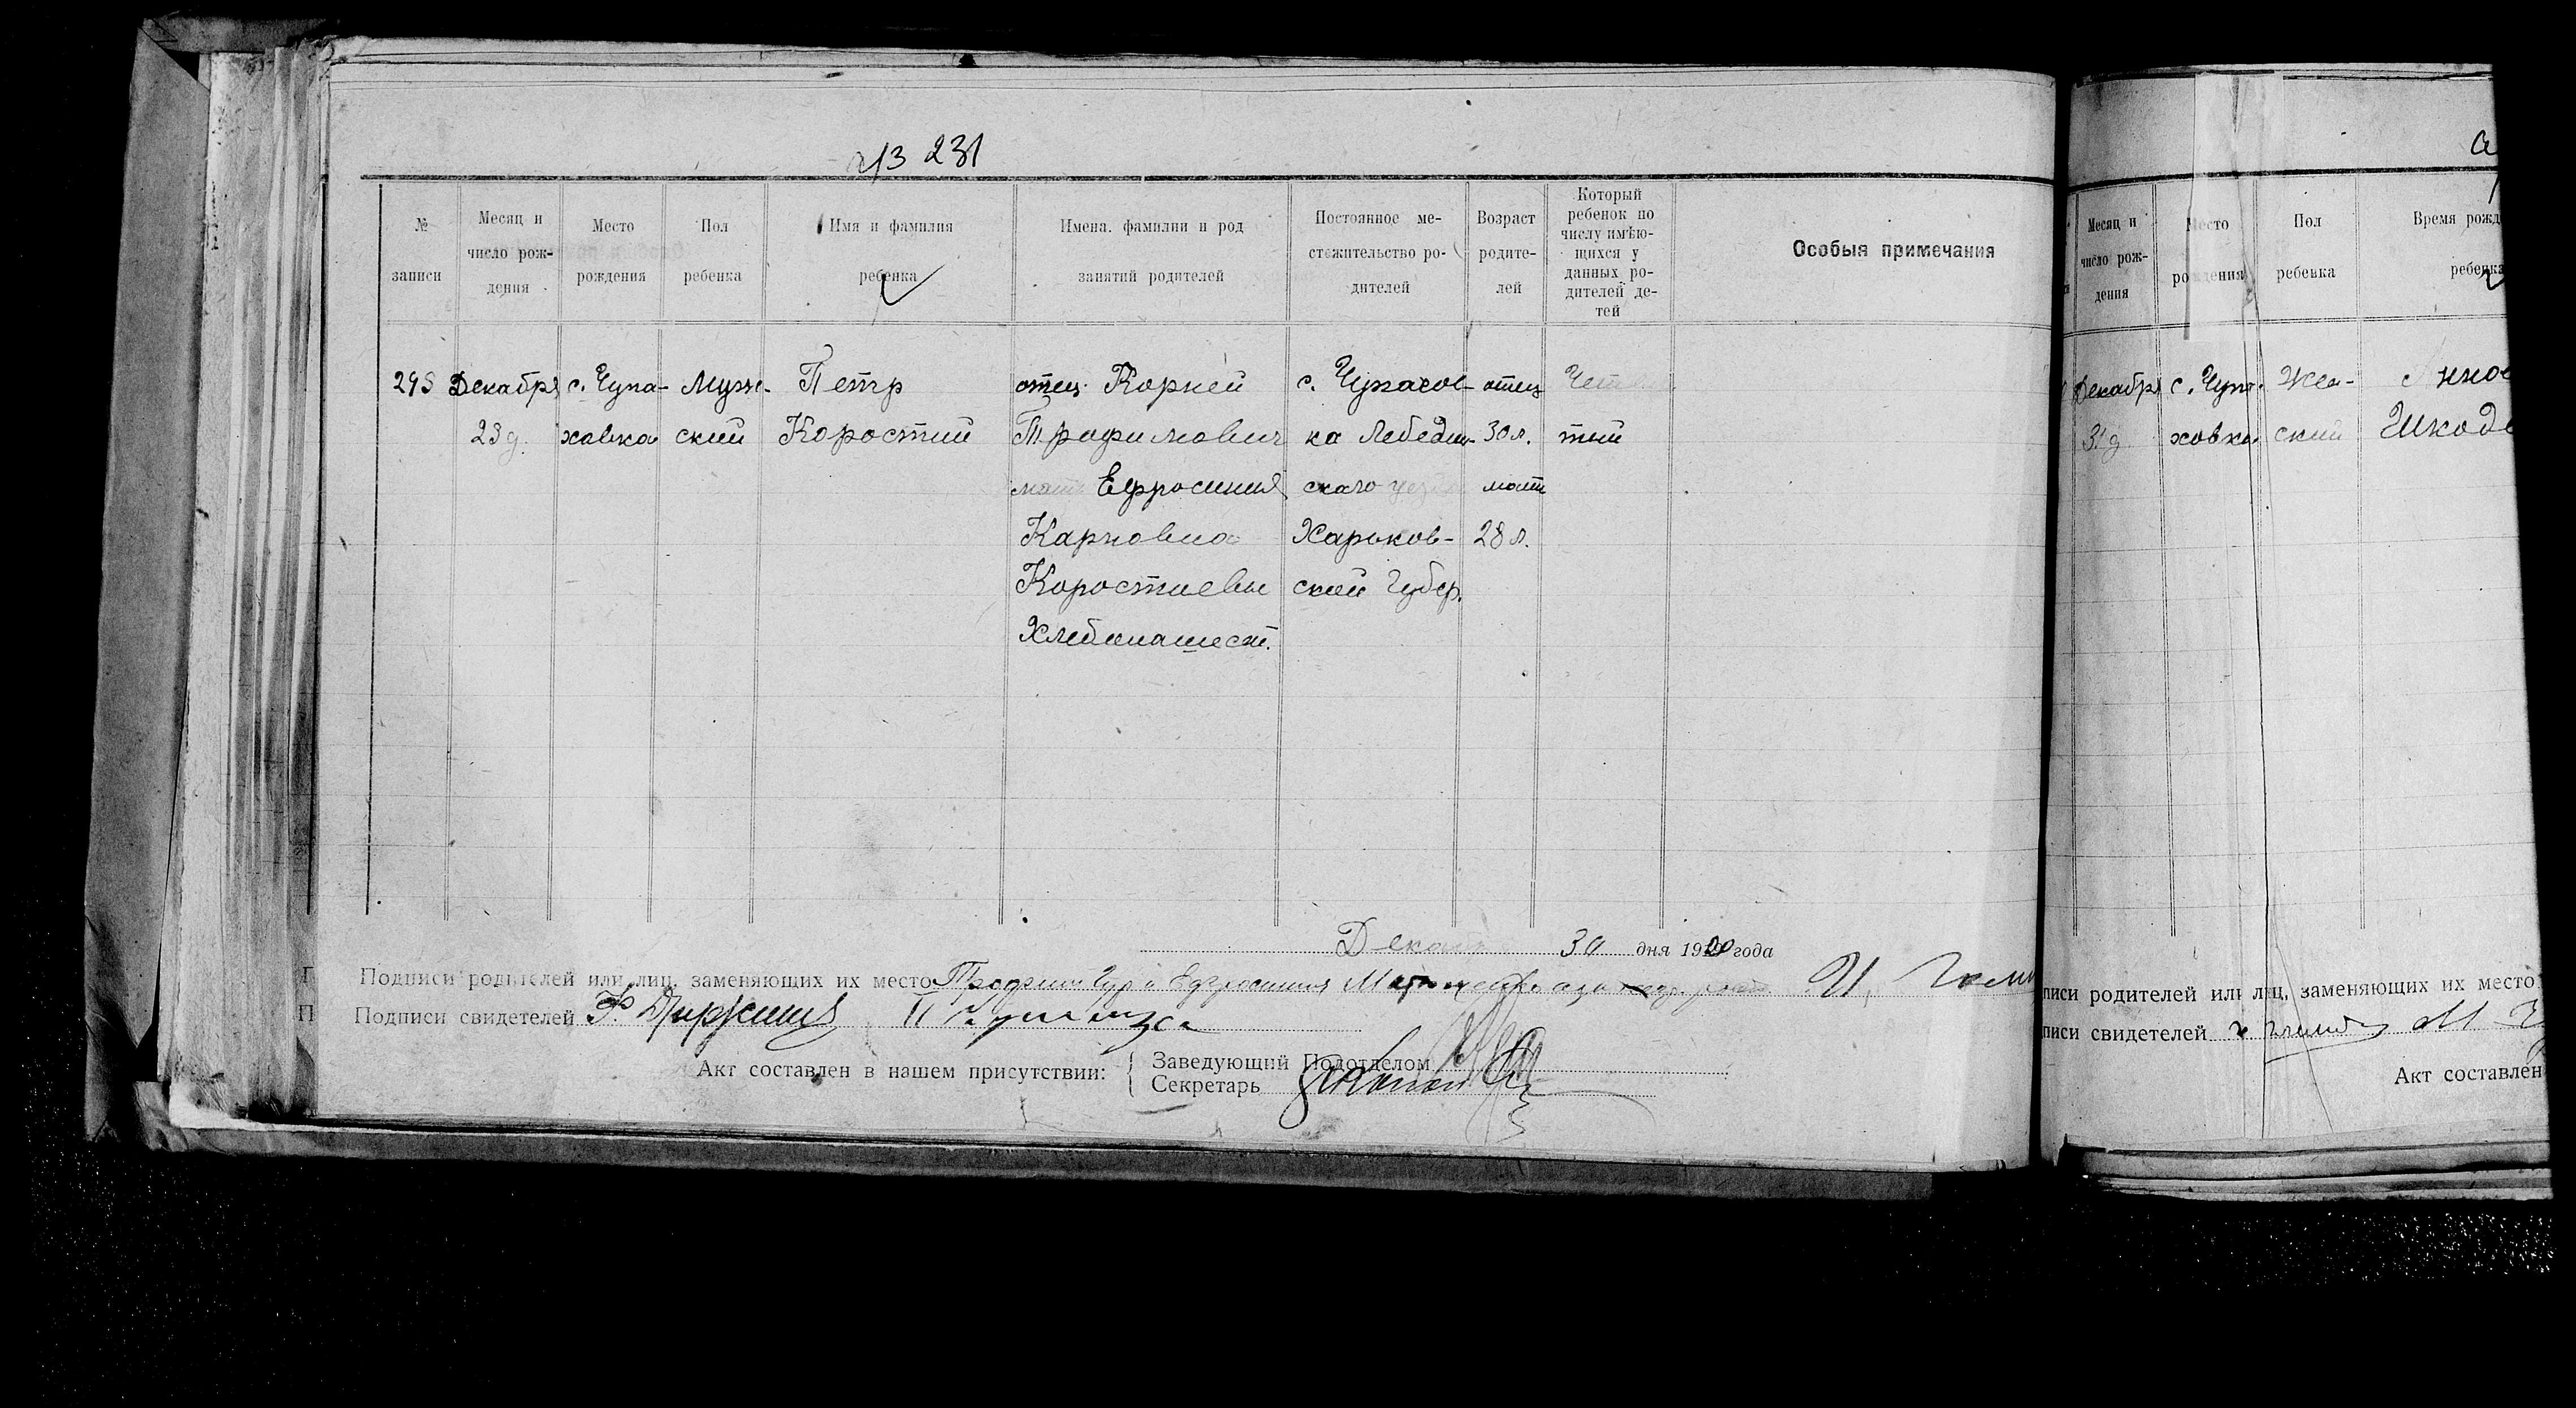 231
№ записи
Месяц и число рождения
Место рождения
Пол ребенка
Имя и фамилия ребенка
Имена, фамилии и род занятий родителей
Постоянное местожительство родителей
Возраст родителей
Который ребенок по числу имѣющихся у данных родителей детей
Особыя примечания
295 Декабря с. Чупа- Муж- Петр отец Корней с. Чупахов- отец Четвер
23 д. ховка ский Коростий Трофимович ка Лебедин- 30 л. тый
мать Ефросиния скаго уезда мать
Карповна Харьков- 28 л.
Коростиевы ской Губер.
Хлебопашест.
Декабря 30 дня 1920 года
Подписи родителей или лиц, заменяющих их место
Подписи свидетелей
Акт составлен в нашем присутствии:
Заведующий Подотделом
Секретарь
Месяц и число рождения
Место рождения
Пол ребенка
Время рожд
ребенка
Декабря с. Чупа- Жен-
31 д ховка ский Шкод
писи родителей или лиц, заменяющих их место
писи свидетелей
Акт составлен